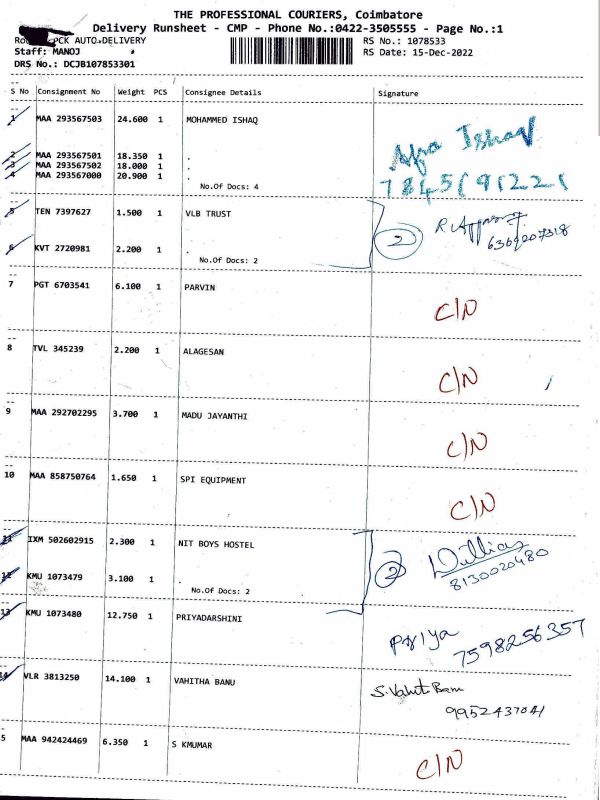 THE PROFESSIONAL COURIERS, Coimbatore
Delivery Runsheet - CMP - Phone No.:0422-3505555 - Page No.:1
PCK AUTO DELIVERY
RS No.: 1078533
Staff: MANOJ
RS Date: 15-Dec-2022
DRS No.: DCJB107853301
S No Consignment No Weight PCS Consignee Details Signature
1 MAA 293567503 24.600 1 MOHAMMED ISHAQ
2 MAA 293567501 18.350 1 .
3 MAA 293567502 18.000 1 .
4 MAA 293567000 20.900 1 .
No.Of Docs: 4
Afra Ishaq
7845191221
5 TEN 7397627 1.500 1 VLB TRUST
6 KVT 2720981 2.200 1 .
No.Of Docs: 2
2
6369207318
7 PGT 6703541 6.100 1 PARVIN C/N
8 TVL 345239 2.200 1 ALAGESAN C/N
9 MAA 292702295 3.700 1 MADU JAYANTHI C/N
10 MAA 858750764 1.650 1 SPI EQUIPMENT C/N
11 IXM 502602915 2.300 1 NIT BOYS HOSTEL
12 KMU 1073479 3.100 1 .
No.Of Docs: 2
2
8130020480
13 KMU 1073480 12.750 1 PRIYADARSHINI
Priya
7598256357
14 VLR 3813250 14.100 1 VAHITHA BANU
S.Vahit Banu
9952437041
5 MAA 942424469 6.350 1 S KMUMAR C/N